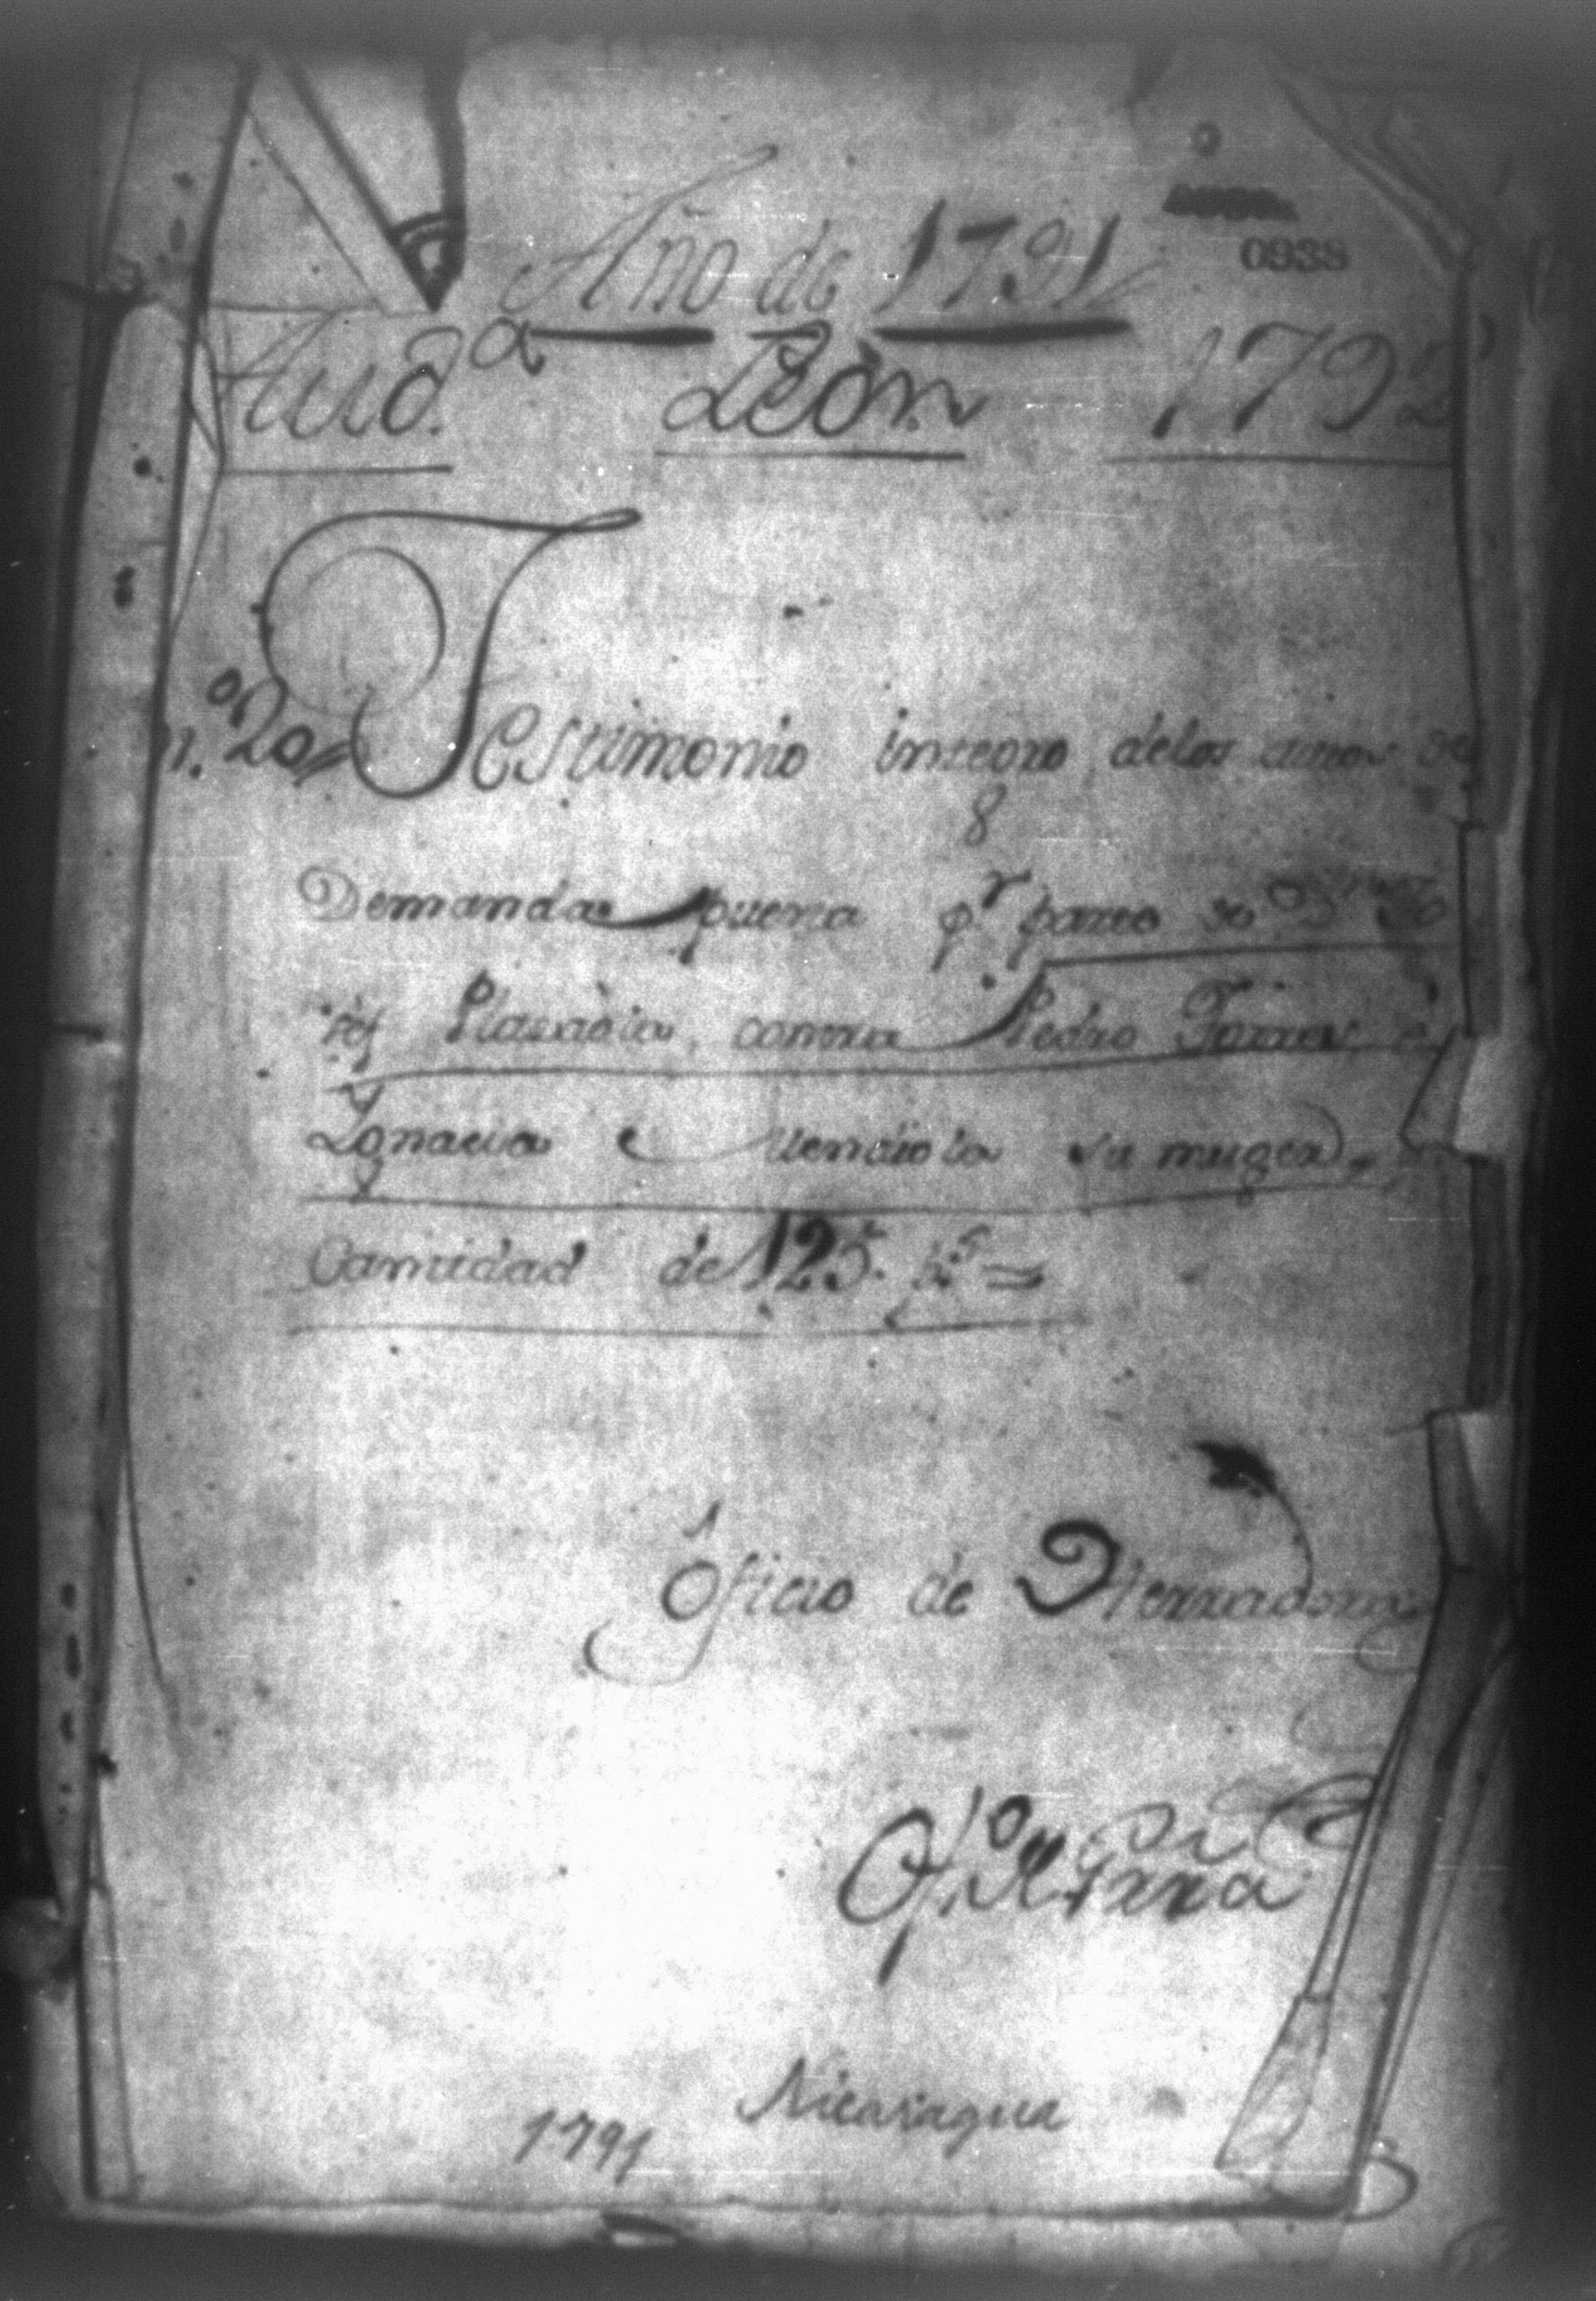 0938
Año de 1791
Aud.ª León 1792
n.º 20 Testimonio integro delos autos de
8
Demanda puesta p.r parte de
Plasaola, contra Pedro Torres,
Ygnacia su muger,
Cantidad de 125. p.s =
Oficio de Herradora
Of.º Parra
1791 Nicaragua